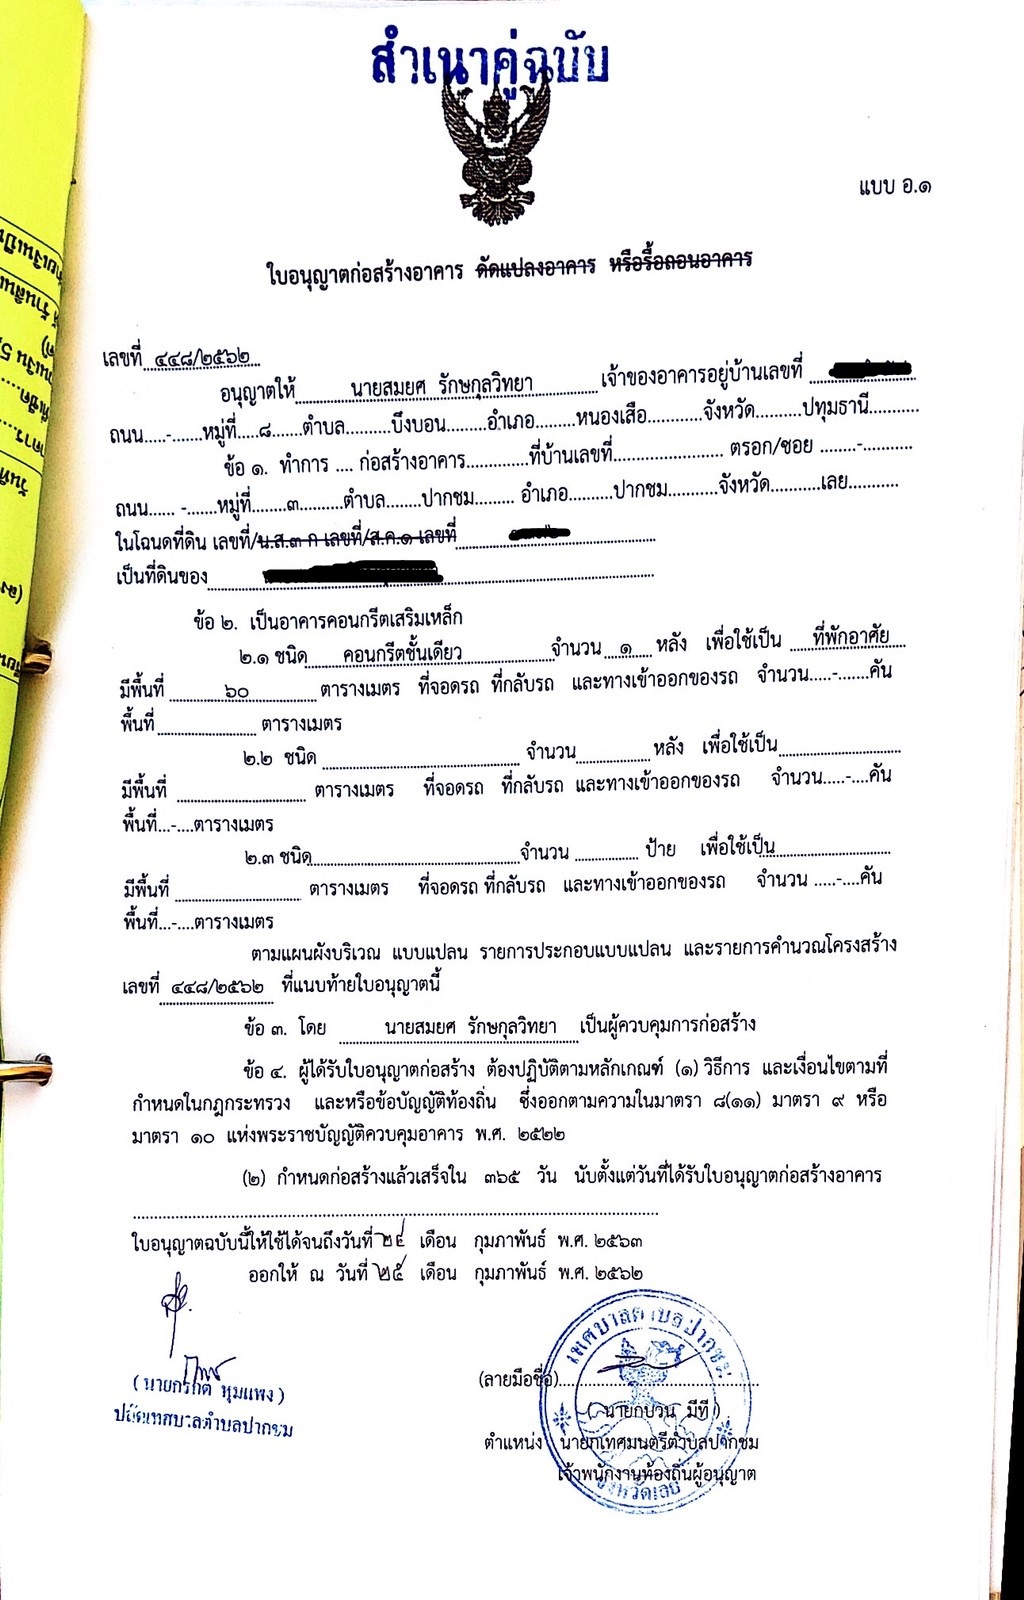 สำเนาคู่ฉบับ
แบบ อ.๑
ใบอนุญาตก่อสร้างอาคาร ดัดแปลงอาคาร หรือรื้อถอนอาคาร
เลขที่ ๔๔๘/๒๕๖๒
อนุญาตให้ นายสมยศ รักษกุลวิทยา เจ้าของอาคารอยู่บ้านเลขที่
ถนน.....-......หมู่ที่....๘.......ตำบล..........บึงบอน.........อำเภอ.........หนองเสือ............จังหวัด..........ปทุมธานี...........
ข้อ ๑. ทำการ .... ก่อสร้างอาคาร..............ที่บ้านเลขที่........................ ตรอก/ซอย ........-...........
ถนน...... -.......หมู่ที่........๓..........ตำบล.......ปากชม......... อำเภอ..........ปากชม...........จังหวัด...........เลย...........
ในโฉนดที่ดิน เลขที่/น.ส.๓ ก เลขที่/ส.ค.๑ เลขที่
เป็นที่ดินของ
ข้อ ๒. เป็นอาคารคอนกรีตเสริมเหล็ก
๒.๑ ชนิด คอนกรีตชั้นเดียว จำนวน ๑ หลัง เพื่อใช้เป็น ที่พักอาศัย
มีพื้นที่ ๖๐ ตารางเมตร ที่จอดรถ ที่กลับรถ และทางเข้าออกของรถ จำนวน.....-.......คัน
พื้นที่ ตารางเมตร
๒.๒ ชนิด จำนวน หลัง เพื่อใช้เป็น
มีพื้นที่ ตารางเมตร ที่จอดรถ ที่กลับรถ และทางเข้าออกของรถ จำนวน.....-....คัน
พื้นที่...-....ตารางเมตร
๒.๓ ชนิด จำนวน ป้าย เพื่อใช้เป็น
มีพื้นที่ ตารางเมตร ที่จอดรถ ที่กลับรถ และทางเข้าออกของรถ จำนวน .....-....คัน
พื้นที่...-....ตารางเมตร
ตามแผนผังบริเวณ แบบแปลน รายการประกอบแบบแปลน และรายการคำนวณโครงสร้าง
เลขที่ ๔๔๘/๒๕๖๒ ที่แนบท้ายใบอนุญาตนี้
ข้อ ๓. โดย นายสมยศ รักษกุลวิทยา เป็นผู้ควบคุมการก่อสร้าง
ข้อ ๔. ผู้ได้รับใบอนุญาตก่อสร้าง ต้องปฏิบัติตามหลักเกณฑ์ (๑) วิธีการ และเงื่อนไขตามที่
กำหนดในกฎกระทรวง และหรือข้อบัญญัติท้องถิ่น ซึ่งออกตามความในมาตรา ๘(๑๑) มาตรา ๙ หรือ
มาตรา ๑๐ แห่งพระราชบัญญัติควบคุมอาคาร พ.ศ. ๒๕๒๒
(๒) กำหนดก่อสร้างแล้วเสร็จใน ๓๖๕ วัน นับตั้งแต่วันที่ได้รับใบอนุญาตก่อสร้างอาคาร
ใบอนุญาตฉบับนี้ให้ใช้ได้จนถึงวันที่ ๒๔ เดือน กุมภาพันธ์ พ.ศ. ๒๕๖๓
ออกให้ ณ วันที่ ๒๕ เดือน กุมภาพันธ์ พ.ศ. ๒๕๖๒
เทศบาลตำบลปากชม
(ลายมือชื่อ)
ปลัดเทศบาลตำบลปากชม
ตำแหน่ง นายกเทศมนตรีตำบลปากชม
เจ้าพนักงานท้องถิ่นผู้อนุญาต
จังหวัดเลย